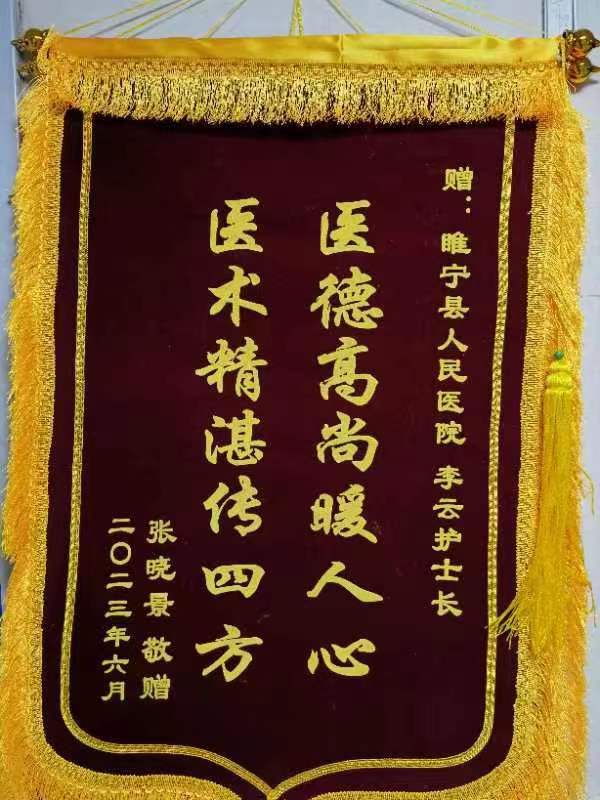 赠：睢宁县人民医院 李云护士长
医德高尚暖人心
医术精湛传四方
张晓景 敬赠
二〇二三年六月